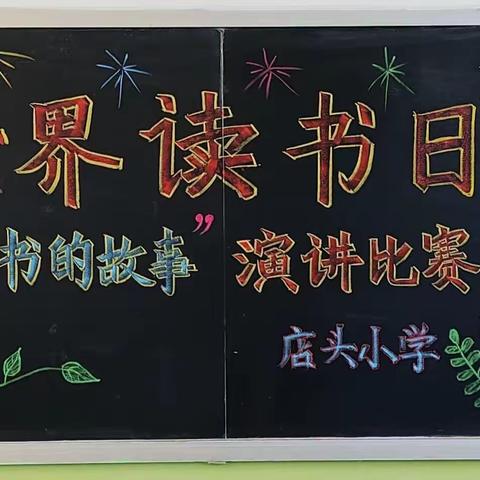 界读书日
书的故事”演讲比赛
店头小学